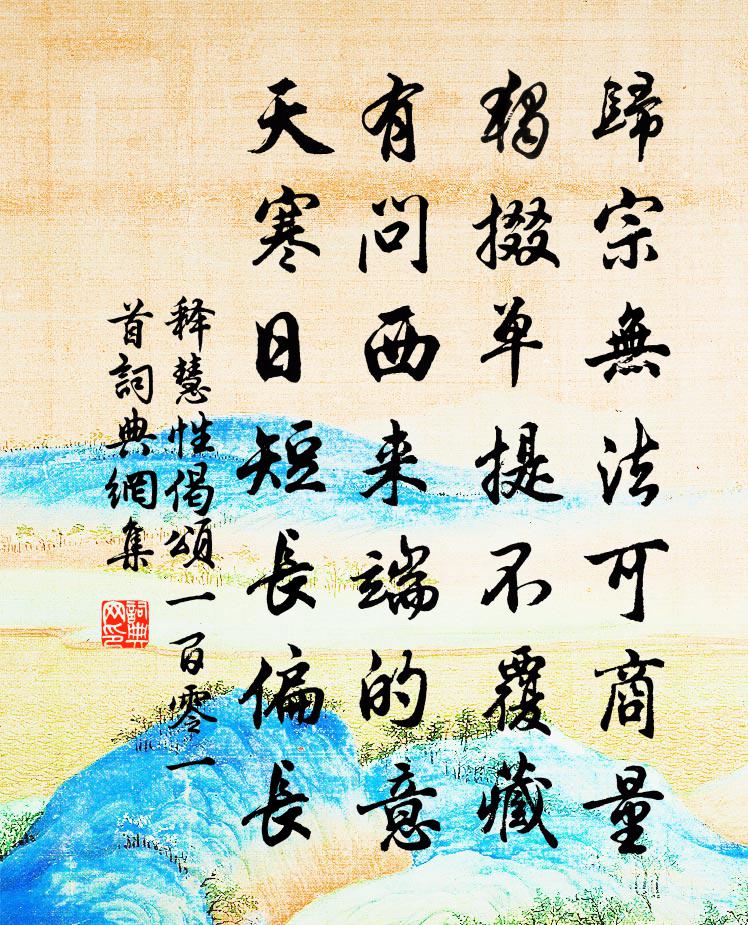 歸宗無法可商量
獨掇單提不覆藏
有問西来端的意
天寒日短長偏長
释慧性偈頌一百零一
首詞典網集
詞典网印